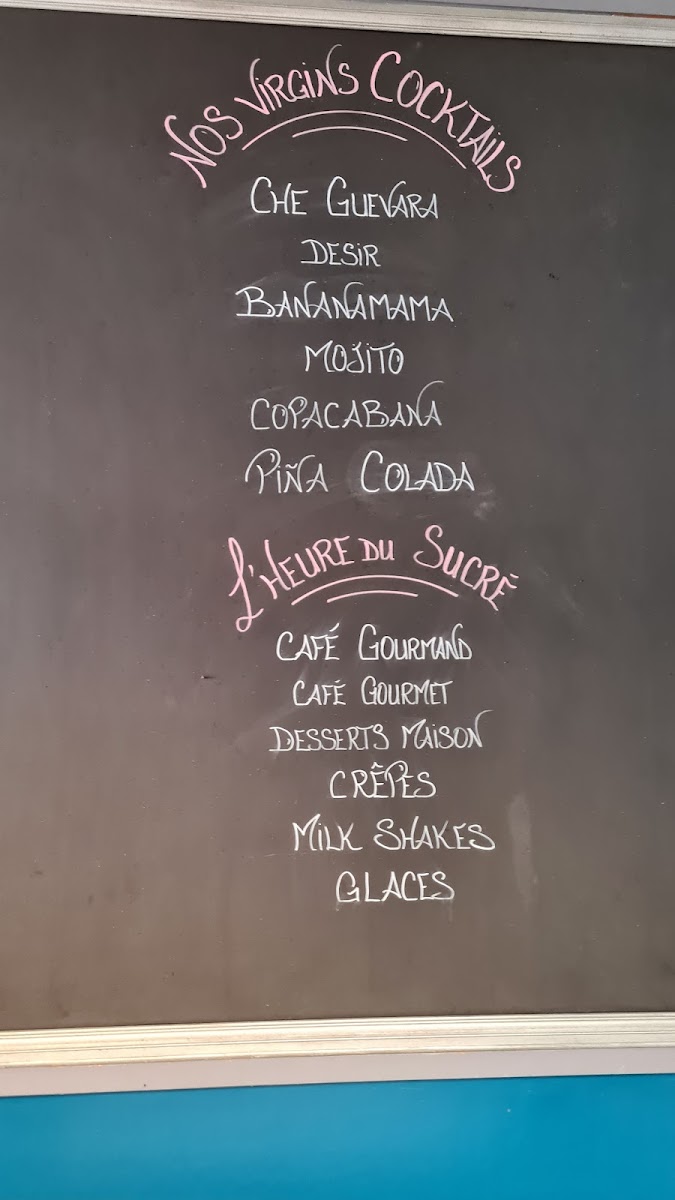 Nos Virgins Cocktails
Che Guevara
Desir
Bananamama
Mojito
Copacabana
Piña Colada
L'Heure du Sucré
Café Gourmand
Café Gourmet
Desserts Maison
Crêpes
Milk Shakes
Glaces